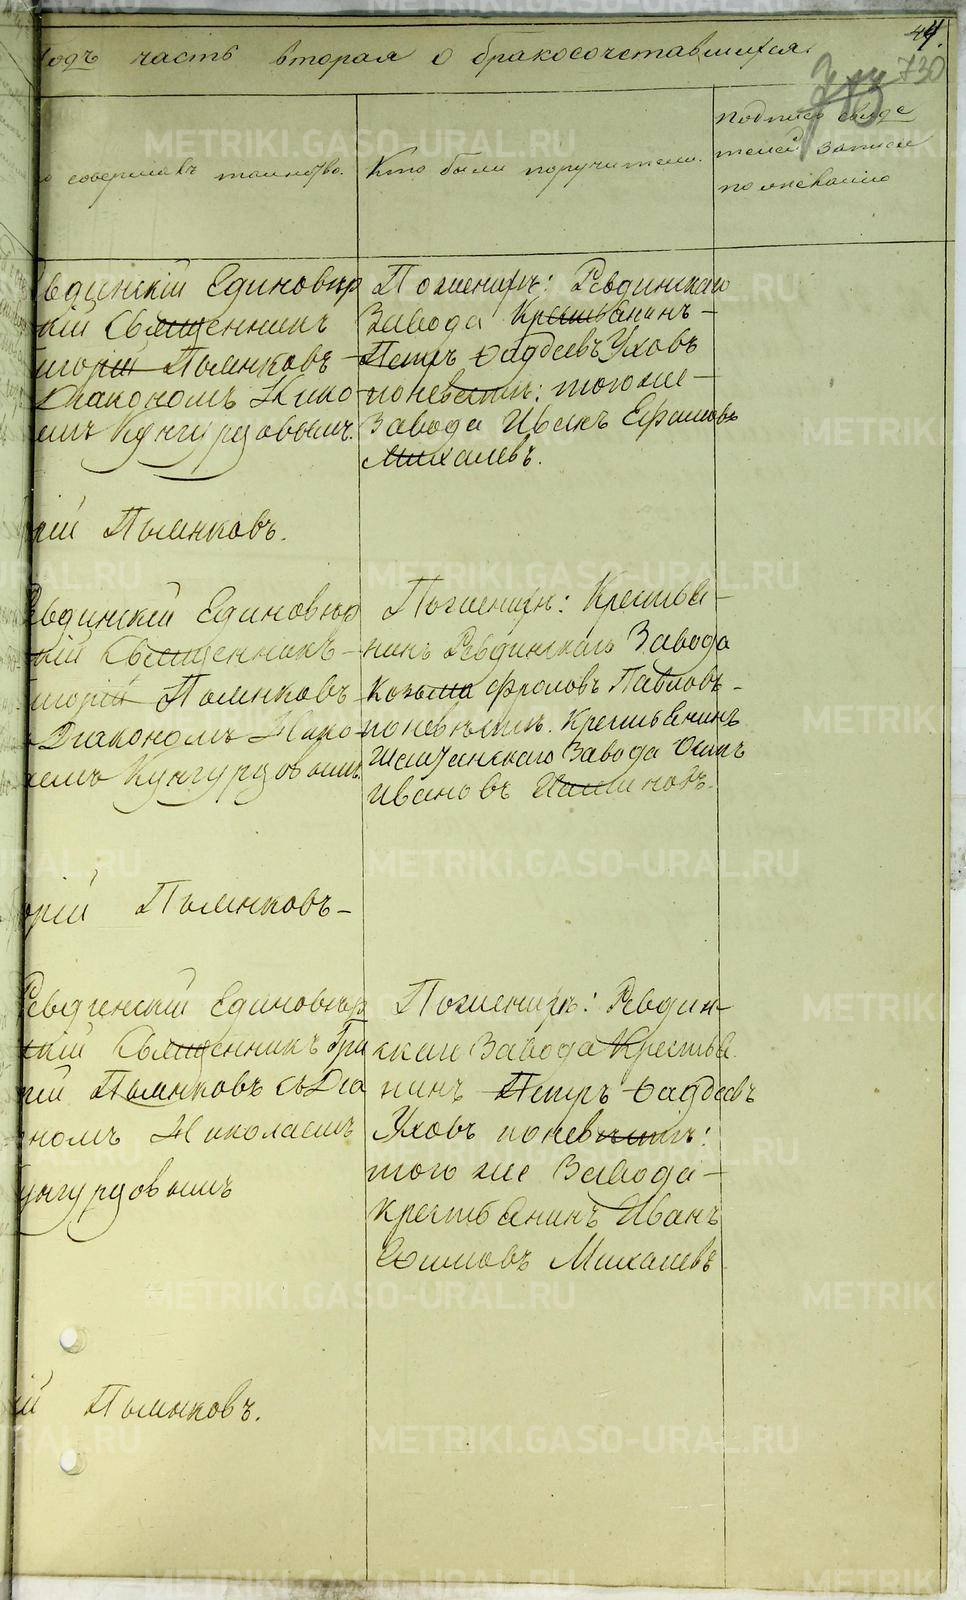 44.
одъ часть вторая о бракосочетавшихся.
730
713
совершалъ таинство.
Кто были поручители.
подпись свиде
телей записи
по желанію
вдинскій Единовѣр
кій Священникъ
игорій Пьянковъ
Діакономъ Нико
емъ Кунгурцовымъ.
По женихѣ: Ревдинскаго
Завода Крестьянинъ –
Петръ Фадѣевъ Уховъ
по невѣстѣ: того же –
Завода Иванъ Ефимовъ
Михалевъ.
рій Пьянковъ.
вдинскій Единовѣр
кій Священникъ –
игорій Пьянковъ
Діакономъ Нико
емъ Кунгурцовымъ.
По женихѣ: Крестья –
нинъ Ревдинскаго Завода
Козьма Фроловъ Павловъ –
по невѣстѣ. Крестьянинъ
Шайтанскаго Завода Осипъ
Ивановъ
орій Пьянковъ –
Ревдинскій Единовѣр
кій Священникъ Гри
рій Пьянковъ съ Діа
номъ Николаемъ
унгурцовымъ
По женихѣ: Ревдин–
скаго Завода Крестья
нинъ Петръ Фадѣевъ
Уховъ по невѣстѣ:
того же Завода –
Крестьянинъ Иванъ
Ефимовъ Михалевъ
ій Пьянковъ.
METRIKI.GASO-URAL.RU